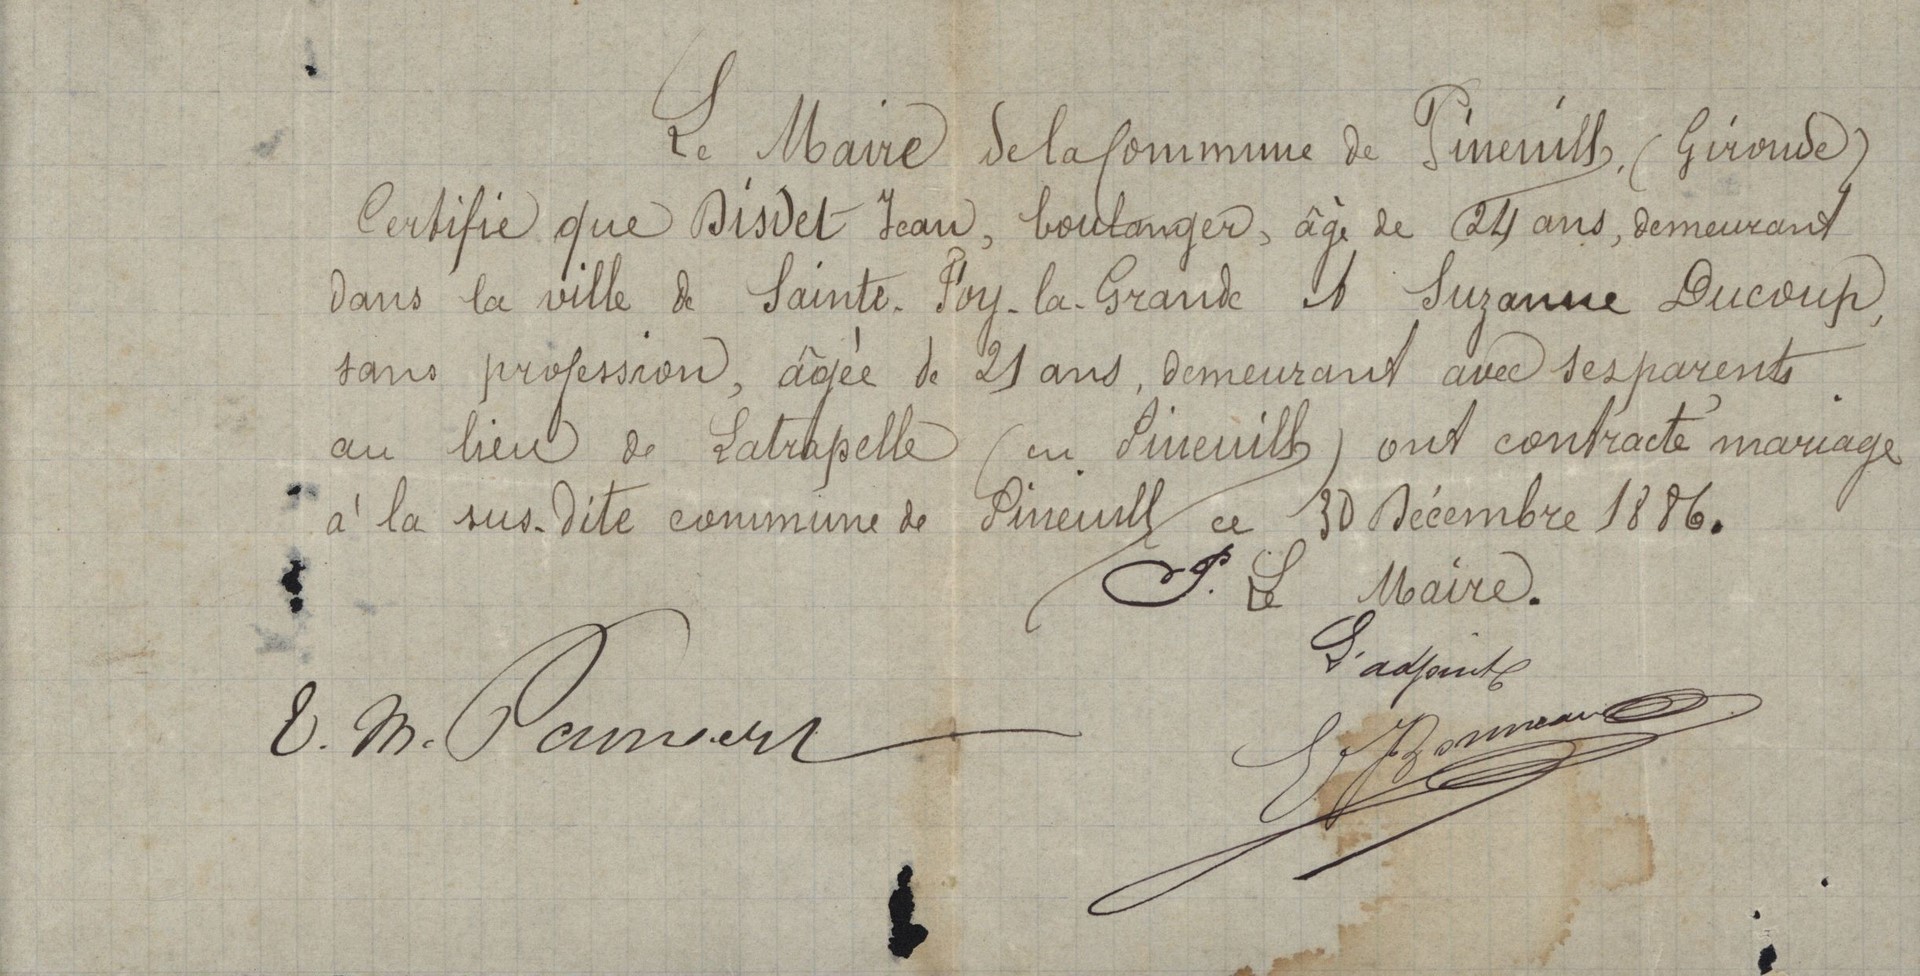 Le Maire de la Commune de Pineuilh, (Gironde)
Certifie que Disdet Jean, boulanger, âgé de 24 ans, demeurant
dans la ville de Sainte-Foy-la-Grande et Suzanne Ducoup,
sans profession, âgée de 21 ans, demeurant avec ses parents
au lieu de Latrapelle (en Pineuilh) ont contracté mariage
à la sus-dite commune de Pineuilh ce 30 Décembre 1886.
P. Le Maire.
L'adjoint
E. M.